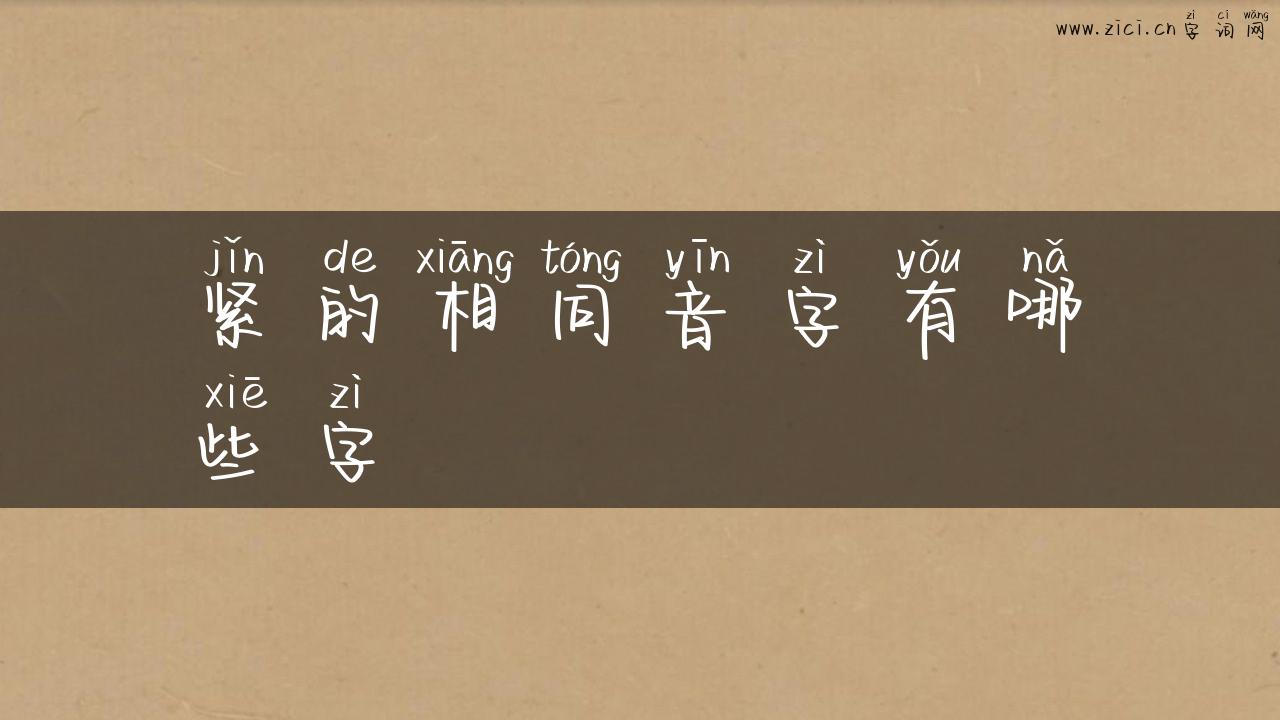 zì cí wǎng
www.zici.cn 字词网
jǐn de xiāng tóng yīn zì yǒu nǎ
紧的相同音字有哪
xiē zì
些字